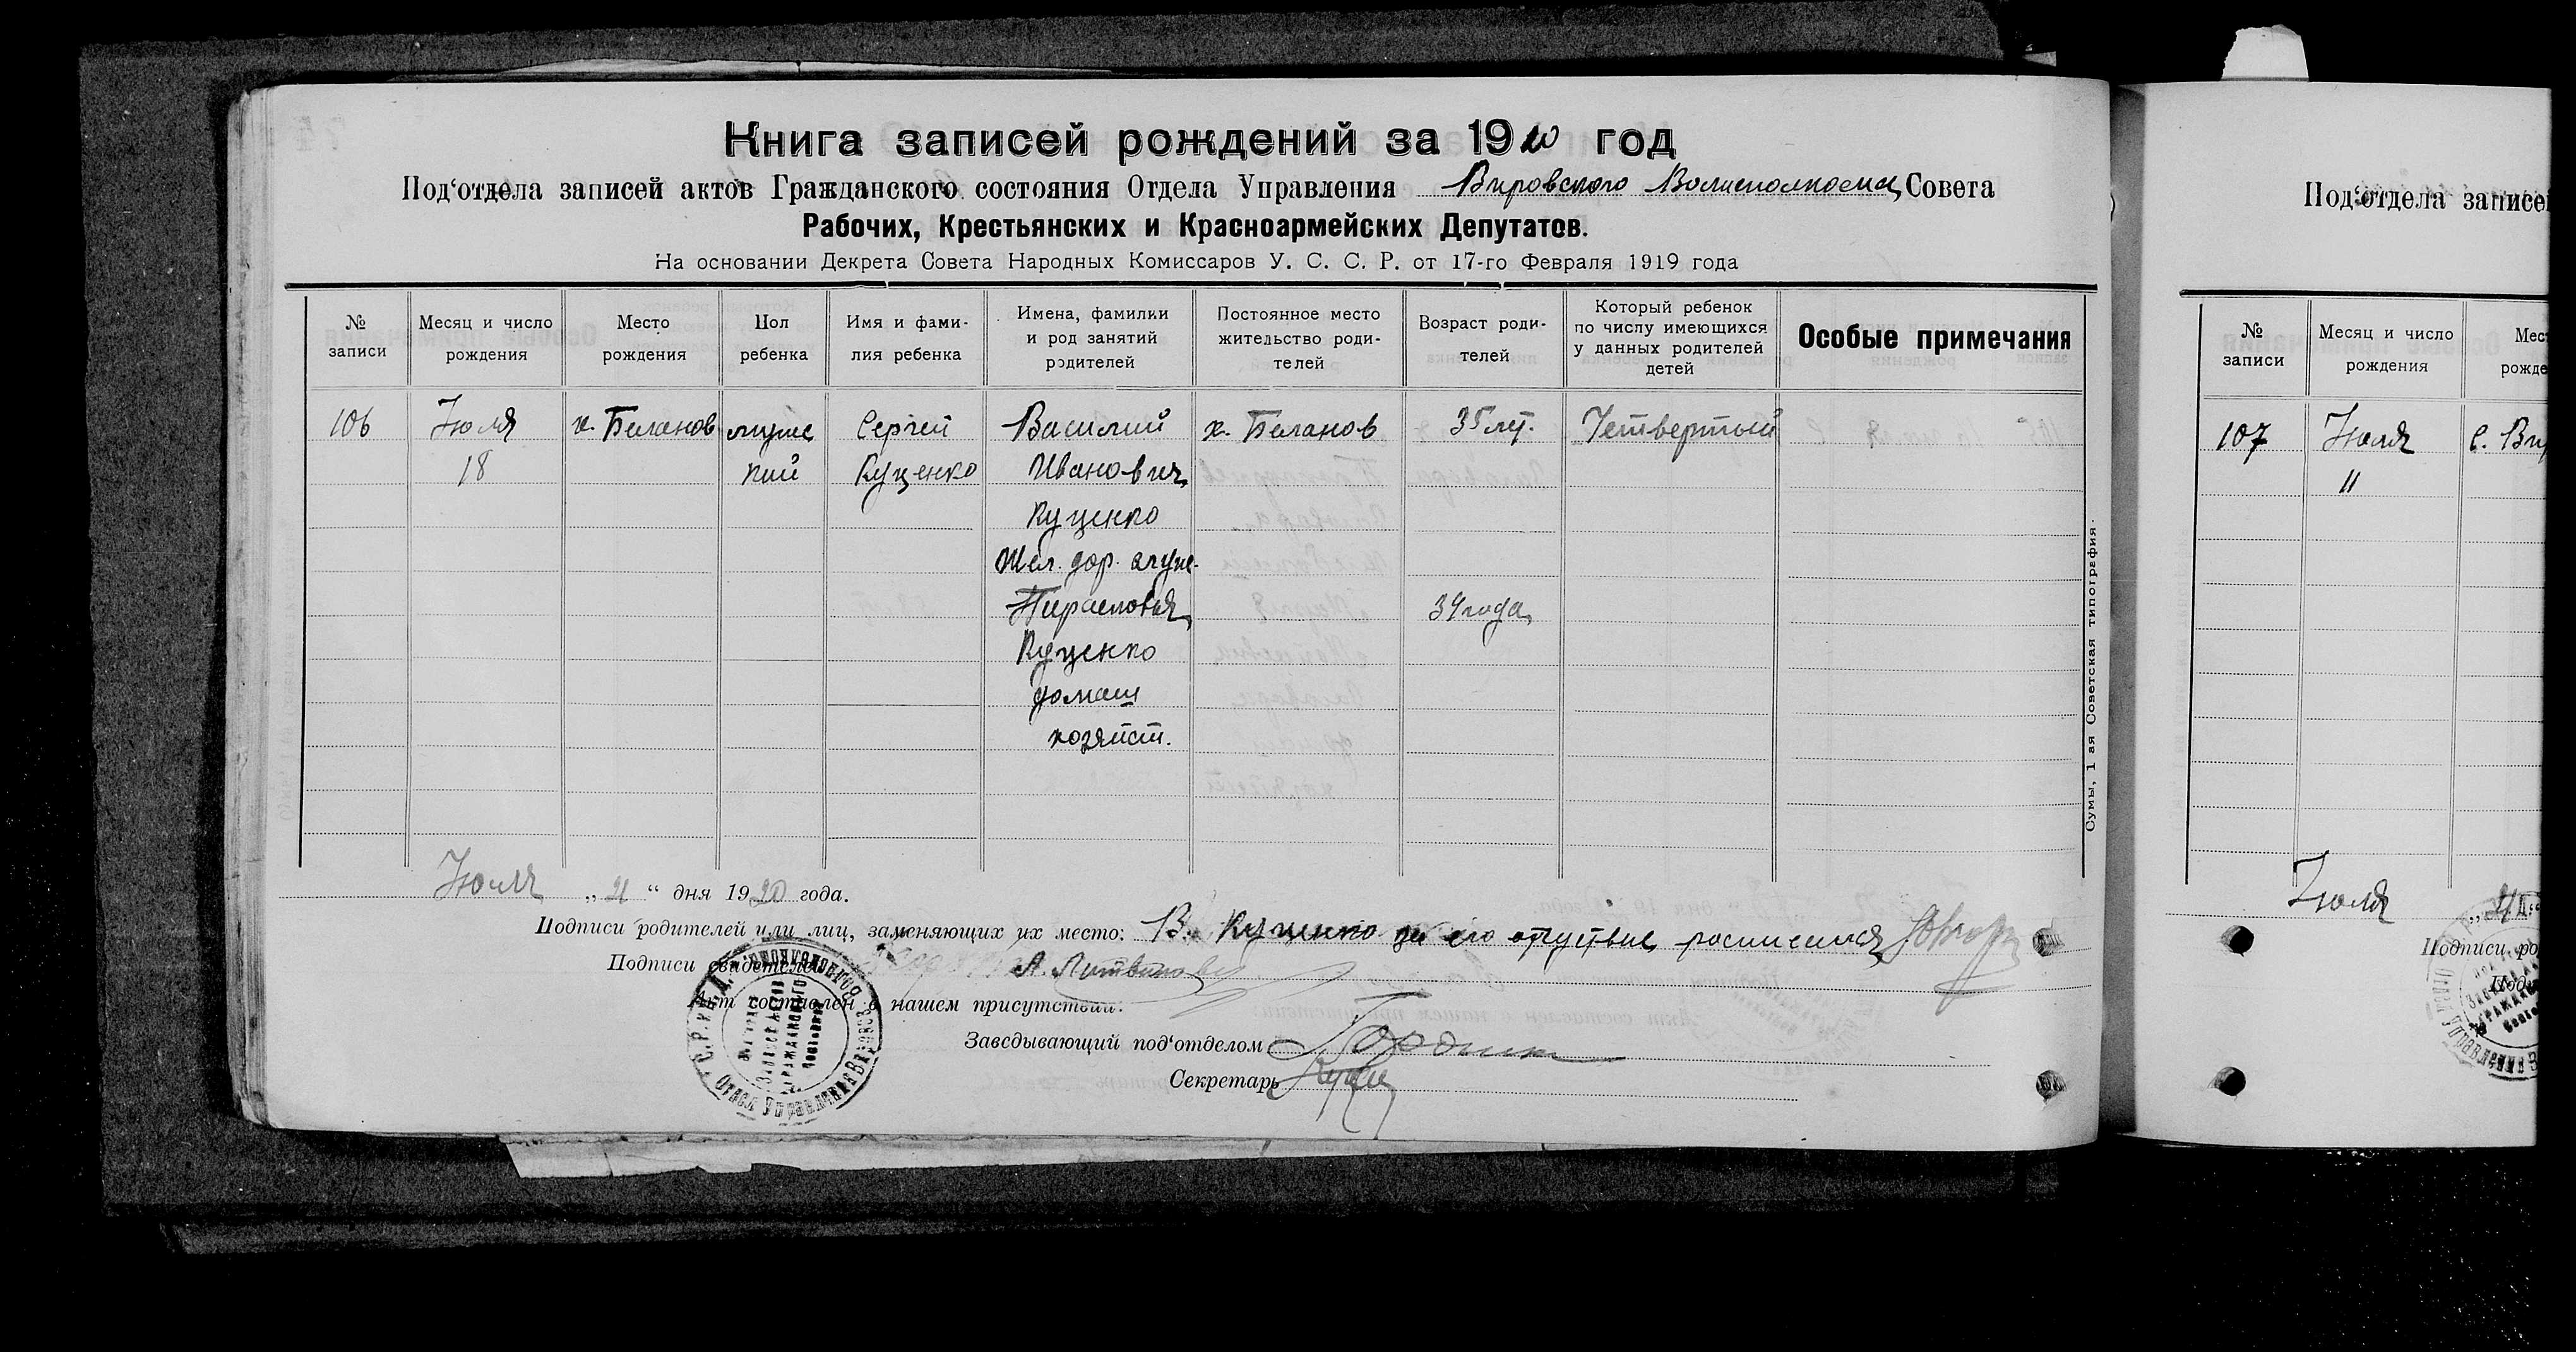 Книга записей рождений за 1920 год
Под‘отдела записей актов Гражданского состояния Отдела Управления Вировского Волисполкома Совета
Рабочих, Крестьянских и Красноармейских Депутатов.
На основании Декрета Совета Народных Комиссаров У. С. С. Р. от 17-го Февраля 1919 года
№ записи
Месяц и число рождения
Место рождения
Пол ребенка
Имя и фамилия ребенка
Имена, фамилии и род занятий родителей
Постоянное место жительство родителей
Возраст родителей
Который ребенок по числу имеющихся у данных родителей детей
Особые примечания
106 Июля х. Беланов мужс Сергей Василий х. Беланов 35 лет. Четвертый
18 кий Куценко Иванович
Куценко
Жел. дор. служ.
Парасковья 34 года
Куценко
домаш
хозяйст.
Июля „21“ дня 1920 года.
Подписи родителей или лиц, заменяющих их место: В. Куценко за его отсуствие росписался
Подписи свидетелей А. Литвинов
Акт составлен в нашем присутствии:
Заведывающий под‘отделом
Секретарь
Сумы, 1 ая Советская типография.
Под‘отдела записей
№ записи
Месяц и число рождения
Мест
рожде
107 Июля с. Вир
11
Июля „21“
Подписи ро
Под